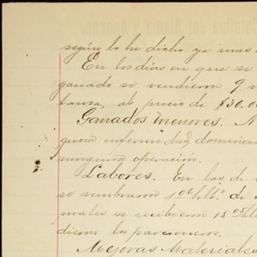 según lo he dicho ya mas
En los dias en que se
ganado se vendieron 9
al precio de $30.00
Ganados menores. N
guna enfermedad domina
ninguna operación.
Labores. En las de
se sembraron
se recibieron 15
dieron
Mejoras Materiales